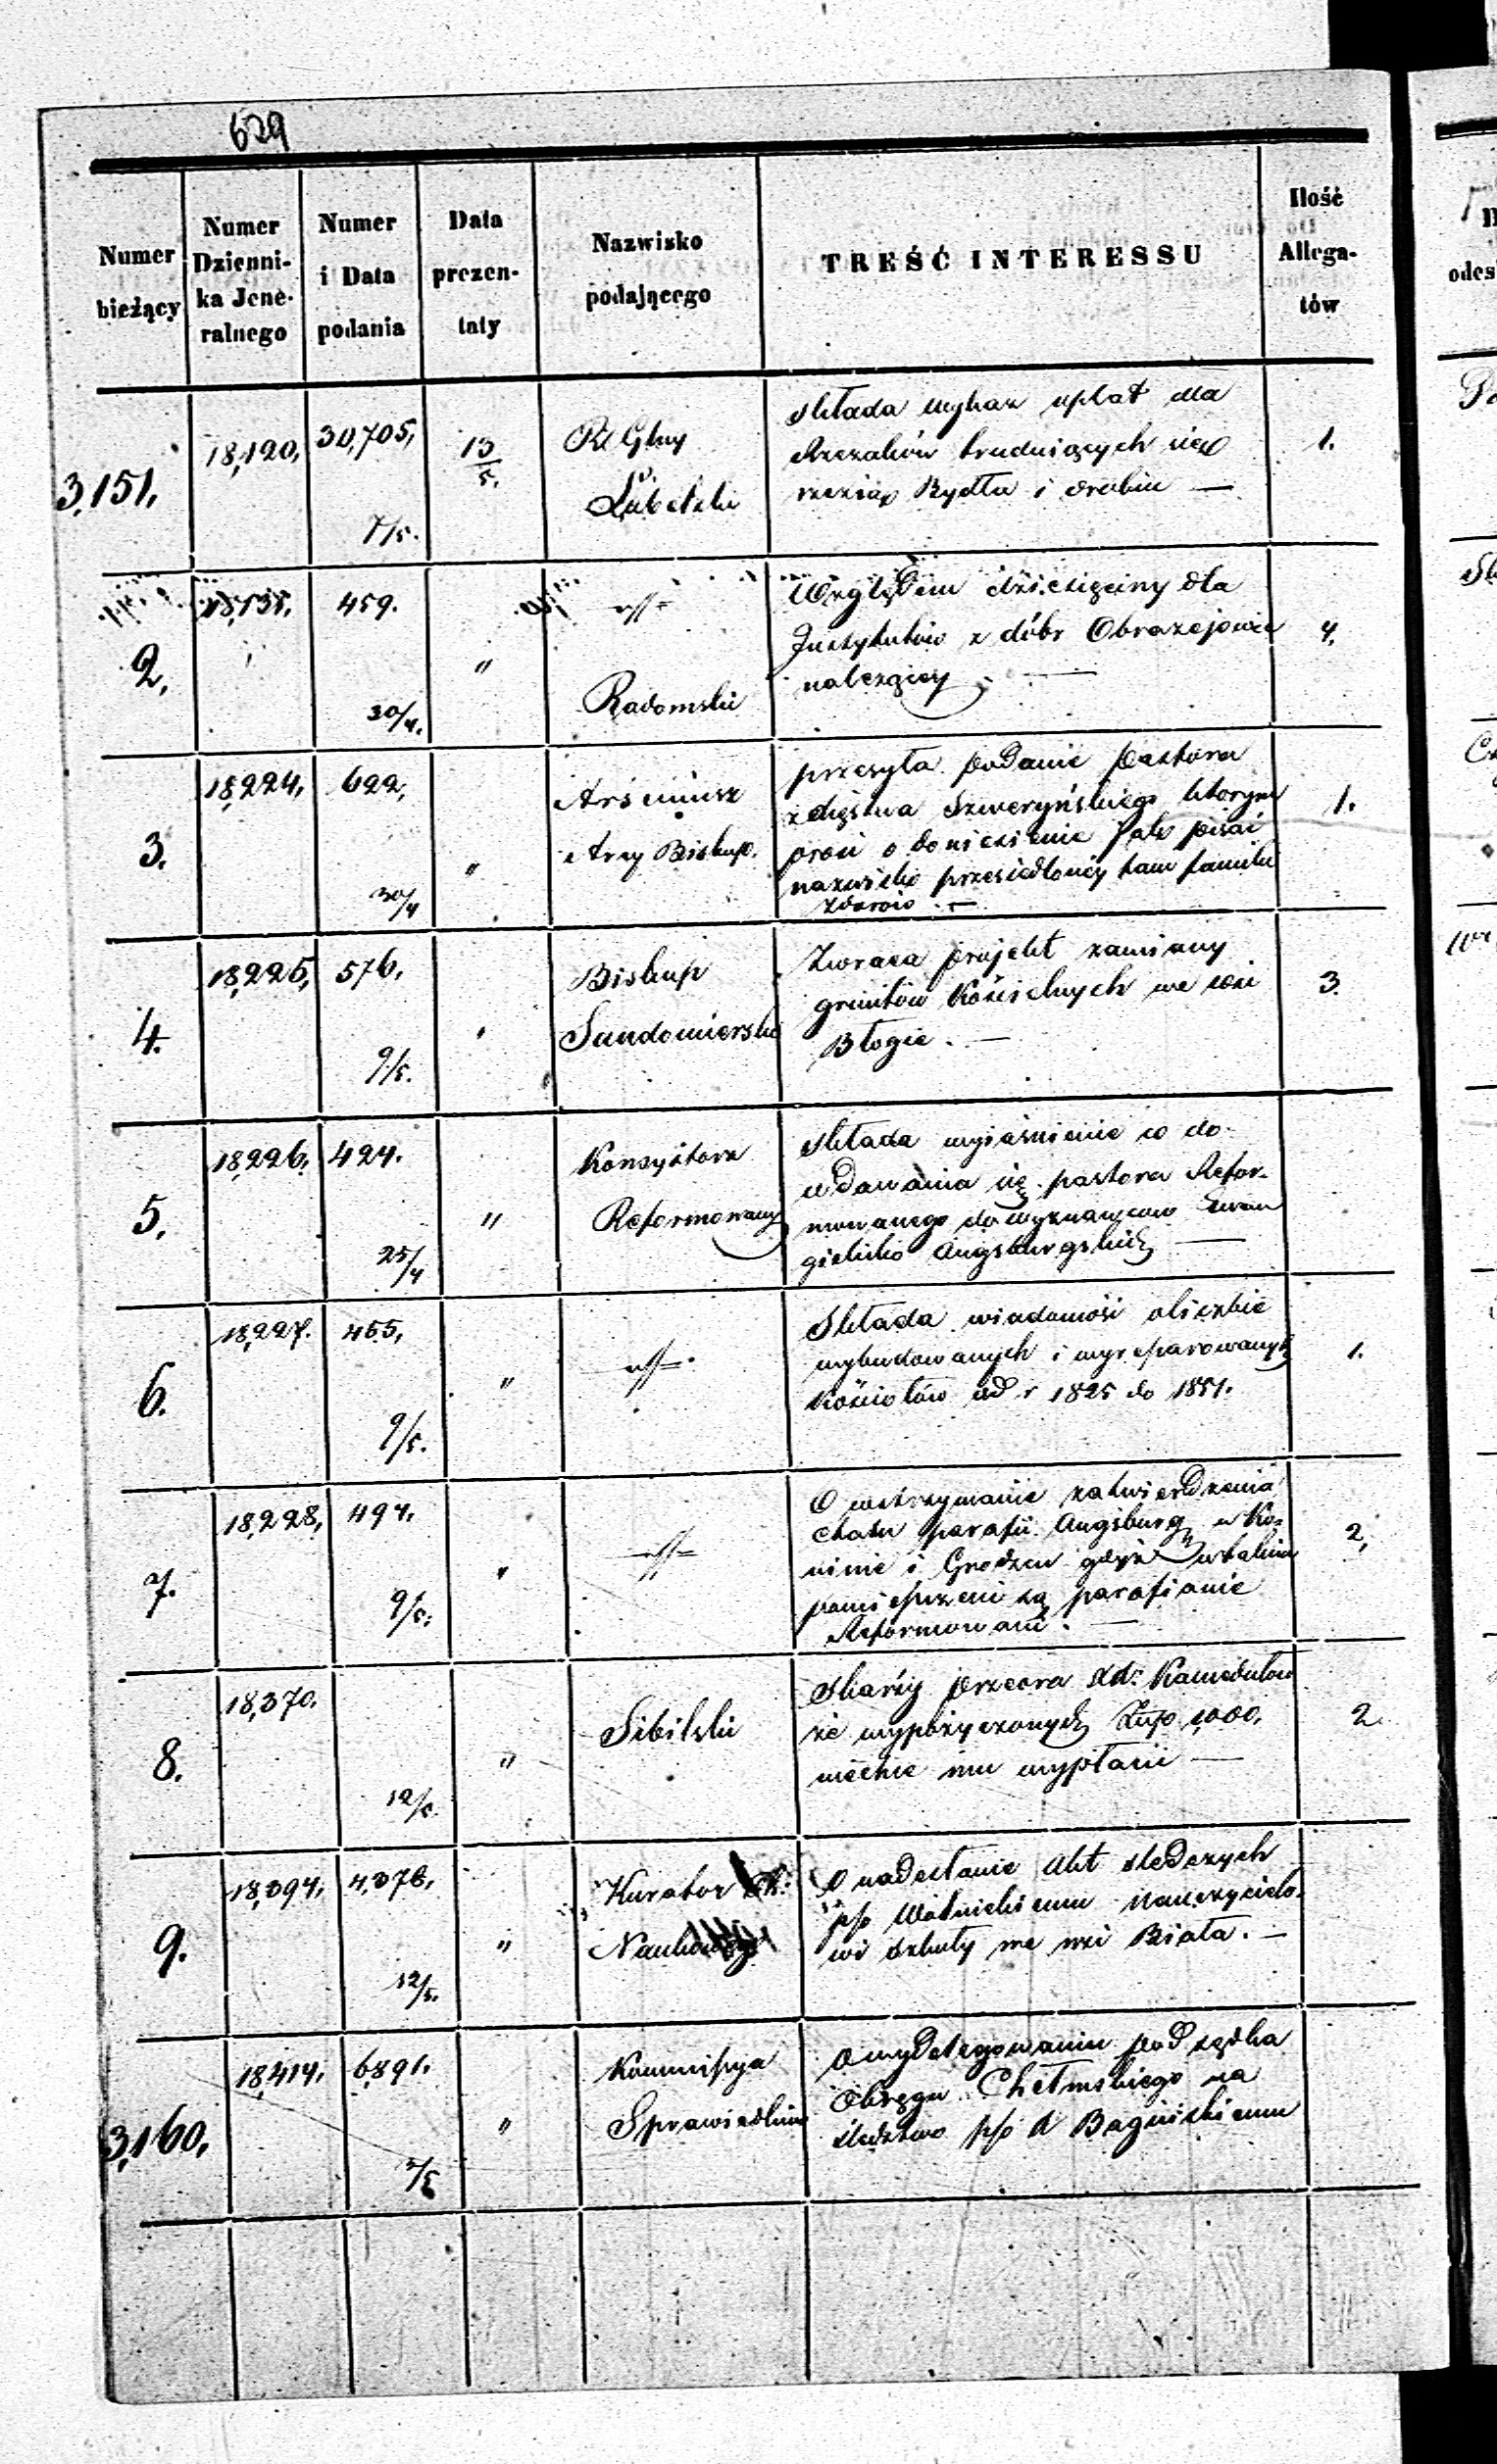 629
Numer bieżący
Numer Dzienni-
ka Jene-
ralnego
Numer
i Data
podania
Data
prezen-
taty
Nazwisko
podającego
TREŚĆ INTERESSU
Ilość
Allega-
tów
3,151.
18,120,
30,705,
7/5.
13/5.
Rd Glny
Lubelski
Składa wykaz upłat dla
Rzezaków trudniących się
rzezią Bydła i drobiu —
1.
2.
18,135.
459.
30/4.
"
Radomski
Względem dziesięciny dla
Instytutów z dóbr
należącey —
4.
3.
18,224,
622,
30/4
"
Arseniusz
Arcy Biskup.
przesyła podanie Pastora
Szweryńskiego którym
prosi o doniesienie jak pisać
nazwisko przesiedlonéy tam familii
—
1.
4.
18,225,
576.
9/5.
"
Biskup
Sandomierski
Zwraca projekt zamiany
gruntów Kościelnych we wsi
Błogie. —
3.
5.
18,226.
424.
25/4
"
Konsystorz
Reformowany
Składa wyjaśnienie co do
udawania się pastora Refor-
mowanego do wyznawców Ewan
gielicko Augsburgskich —
6.
18,227.
455,
9/5.
"
Składa wiadomość o liczbie
wybudowanych i wyreparowanych
Kościołów od r 1825 do 1851.
1.
7.
18,228,
494.
9/5.
"
O wstrzymanie zatwierdzenia
etatu parafii Augsburg. w Ko-
ninie i gdyż w takim
pomieszczeni są parafianie
Reformowani. —
2,
8.
18,370.
12/5.
"
Sibilski
Skarży przeora Kamedułów
że wypożyczonych Złp 1,000,
niechce mu wypłacić —
2.
9.
18,394,
4,378,
12/5.
"
Kurator
O nadesłanie Akt śledczych
p/o Nauczycielo-
wi szkoły we wsi Biała. —
3,160.
18,414.
6,891.
7/5
"
Kommissya
Sprawiedliw
O wydelegowaniu podsędka
Okręgu Chełmskiego na
śledztwo p/o X Bagińskiemu